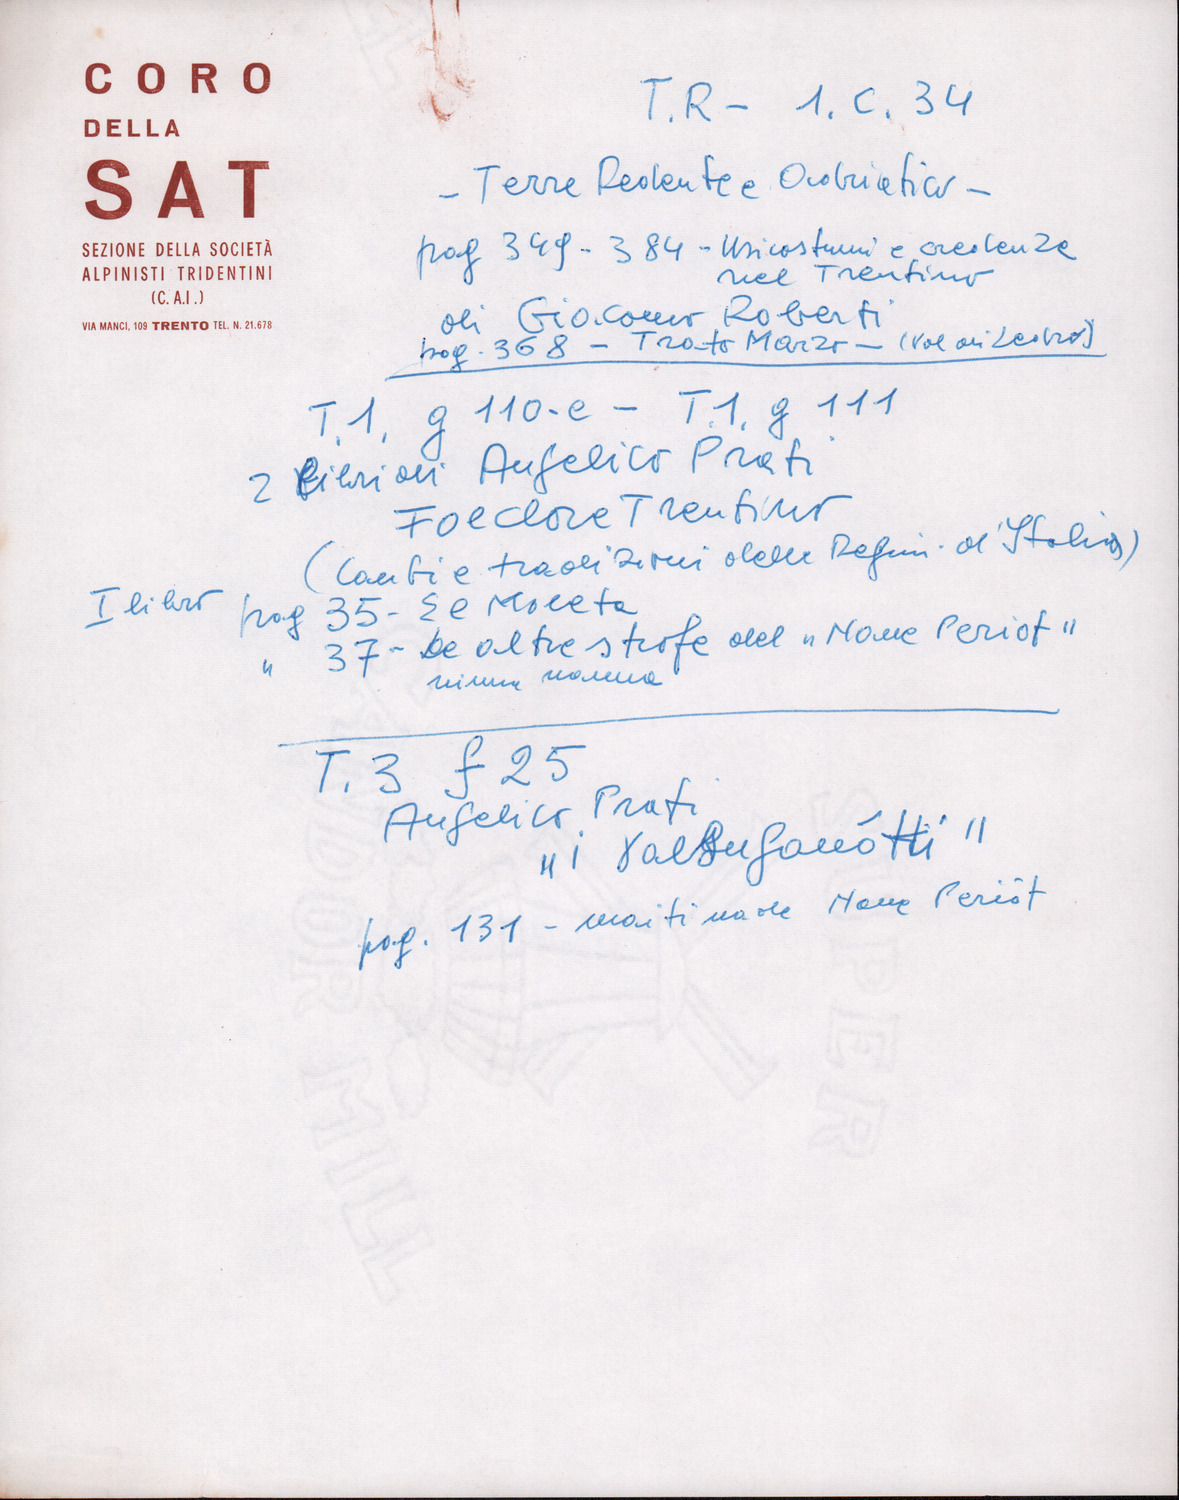 CORO
DELLA
SAT
SEZIONE DELLA SOCIETÀ
ALPINISTI TRIDENTINI
(C.A.I.)
VIA MANCI, 109 TRENTO TEL. N. 21.678
T.R - 1.C.34
- Terre Redente e Adriatico -
pag 349 - 384 - Usi costumi e credenze
nel Trentino
di Giacomo Roberti
pag. 368 - Trato Marzo - (Val di Ledro)
T.1. g 110.e - T.1. g 111
2 libri di Angelico Prati
Folclore Trentino
(Canti e tradizioni delle Regioni d'Italia)
I libro pag 35 - El Moleta
" 37 - Le altre strofe del "Nane Periot"
ninna nanna
T.3 f 25
Angelico Prati
"i Valsuganótti"
pag. 131 - maitinade Nane Periòt
SUPER